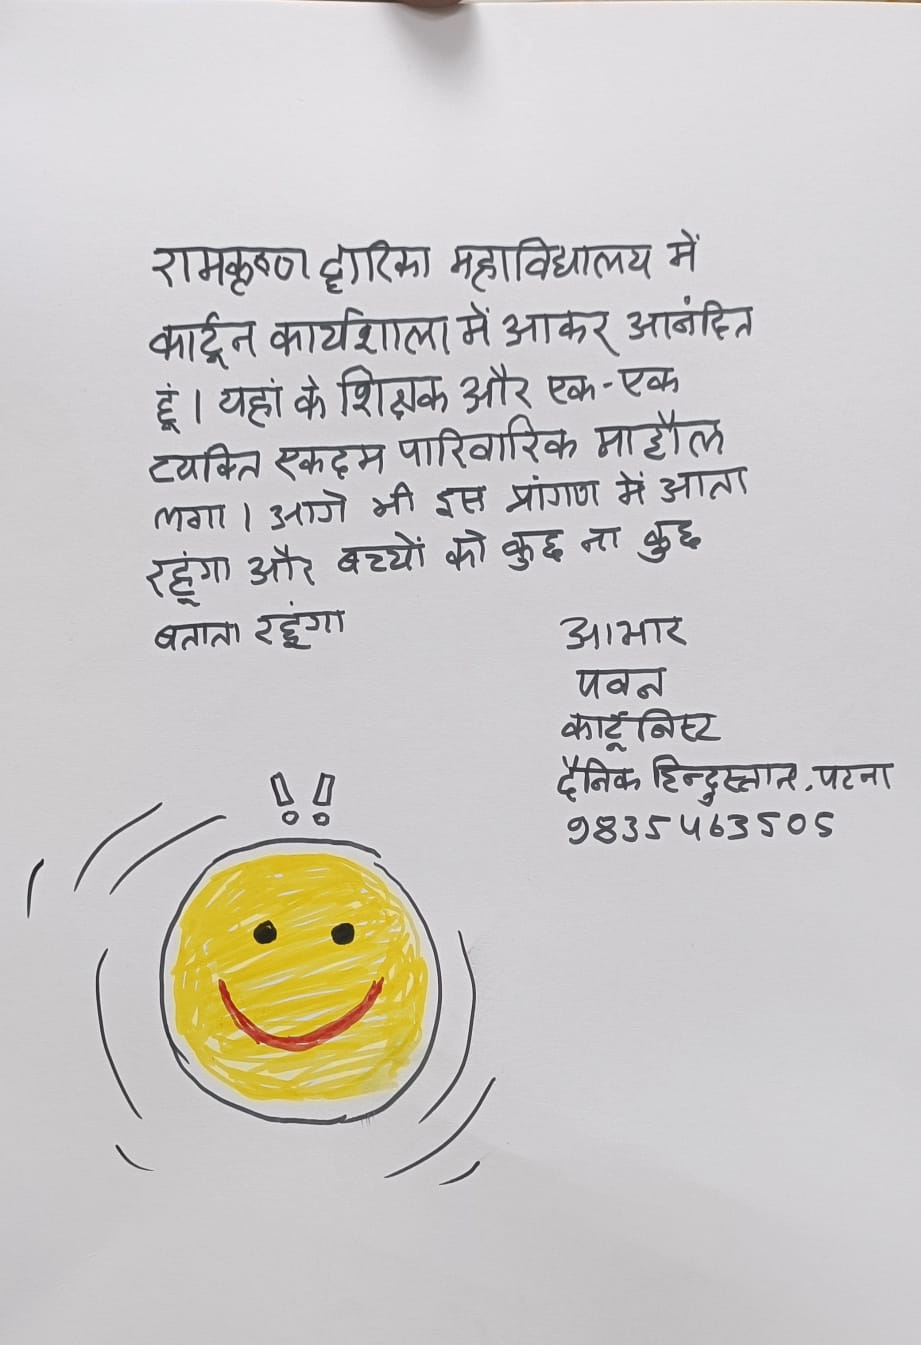 रामकृष्ण द्वारिका महाविद्यालय में
कार्टून कार्यशाला में आकर आनंदित
हूं। यहां के शिक्षक और एक-एक
व्यक्ति एकदम पारिवारिक माहौल
लगा। आगे भी इस प्रांगण में आता
रहूंगा और बच्चों को कुछ ना कुछ
बताता रहूंगा
आभार
पवन
कार्टूनिस्ट
दैनिक हिन्दुस्तान, पटना
9835463505
!!